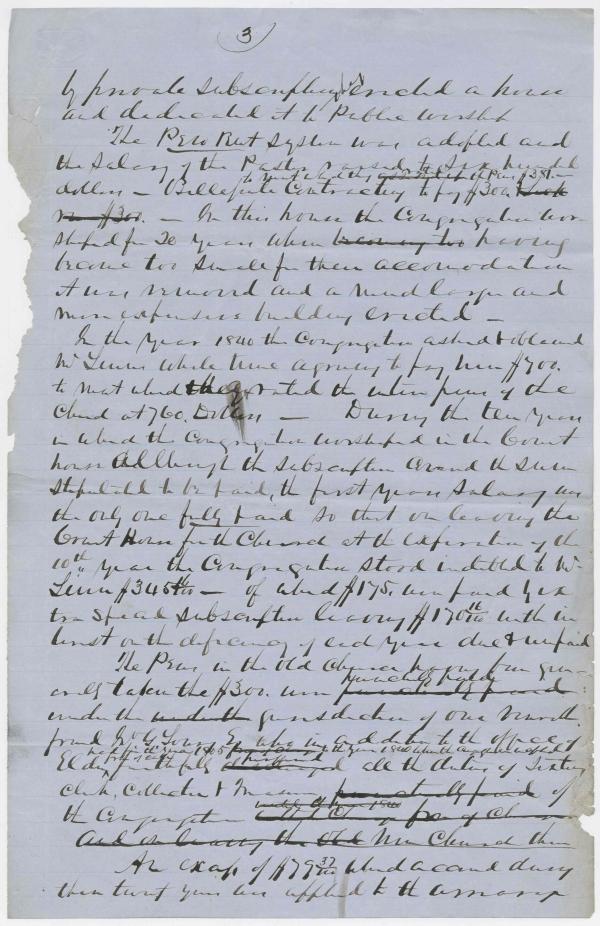 3
by private subscription erected a house
and dedicated it to Public worship
The Pew Rent System was adopted and
the Salary of the Pastor raised to Six hundred
to meet which they
dollars – Bellefonte Contracting to pay $300.
$300. – In this house the Congregation wor-
shiped for 20 years when becoming too having
become too small for their accomodation
it was removed and a much larger and
more expensive building erected –
In the year 1840 the Congregation asked & obtained
Mr Linn's whole time agreeing to pay him $700.
to meet which they rated the pews of the
Church at 760. Dollars – During the ten years
in which the Congregation worshiped in the Court
house Although the Subscription exceeded the Sum
Stipulated to be paid, the first years Salary was
the only one fully paid so that on leaving the
Court House for the Church at the expiration of the
10th year the Congregation stood indebted to Mr
Linn $345 – of which $175. were paid by ex
tra Special Subscription leaving $170 with in
terest on the deficiency of each year due & unpaid
The Pews in the Old Church having been gener
ally taken the $300. were punctually paid
under the jurisdiction of one
friend who in addition to the office of
Elder faithfully discharged all the duties of Sexton
Clerk, Collector & Treasurer punctually paid of
the Congregation
And on leaving the Old New Church there
An excess of $79 37/100 which accrued during
these twenty years was applied to the arrearage